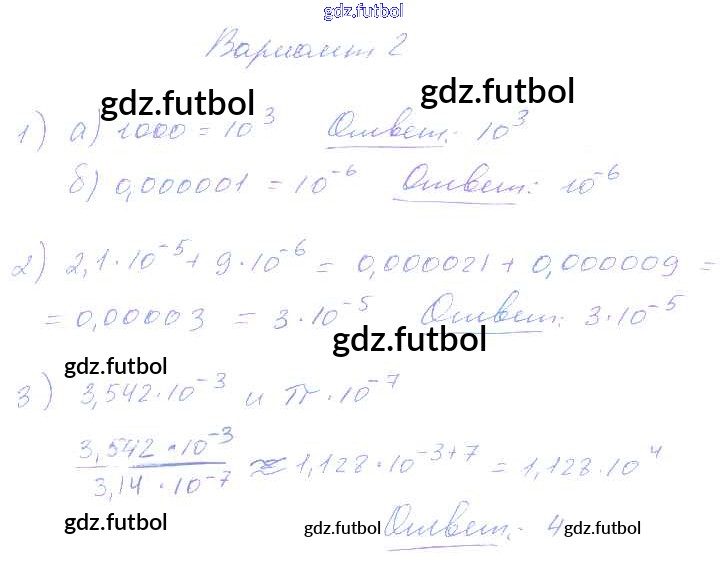 gdz.futbol
Вариант 2
gdz.futbol gdz.futbol
1) а) 1000 = 10^3 Ответ: 10^3
б) 0,000001 = 10^-6 Ответ: 10^-6
2) 2,1·10^-5 + 9·10^-6 = 0,000021 + 0,000009 =
= 0,00003 = 3·10^-5 Ответ: 3·10^-5
gdz.futbol
gdz.futbol
3) 3,542·10^-3 и π·10^-7
3,542·10^-3 / 3,14·10^-7 ≈ 1,128·10^-3+7 = 1,128·10^4
gdz.futbol gdz.futbol Ответ: 4 gdz.futbol